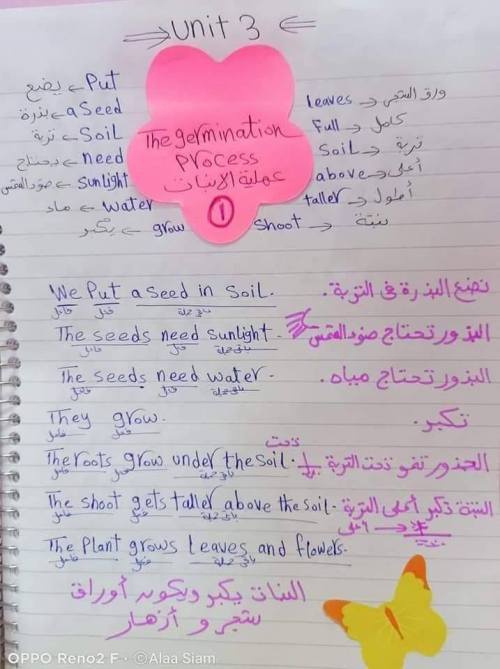 Unit 3
Put ← يضع
a Seed ← بذرة
Soil ← تربة
need ← يحتاج
Sunlight ← ضوء الشمس
water ← ماء
grow ← يكبر
The germination
Process
عملية الانبات
1
leaves → ورق الشجر
Full → كامل
Soil → تربة
above → أعلى
taller → أطول
Shoot → نبتة
We Put a seed in Soil. نضع البذرة فى التربة.
فاعل فعل باقى جملة
The seeds need sunlight. البذور تحتاج ضوء الشمس
فاعل فعل باقى جملة
The seeds need water. البذور تحتاج مياه.
فاعل فعل باقى جملة
They grow. تكبر.
فاعل فعل
تحت
The roots grow under the soil. الجذور تنمو تحت التربة
فاعل فعل باقى جملة
The shoot gets taller above the soil. النبتة تكبر أعلى التربة
فاعل فعل باقى جملة أعلى
The Plant grows leaves and flowers.
فاعل فعل باقى جملة
النبات يكبر ويكون أوراق
شجر و أزهار
OPPO Reno2 F · ©Alaa Siam